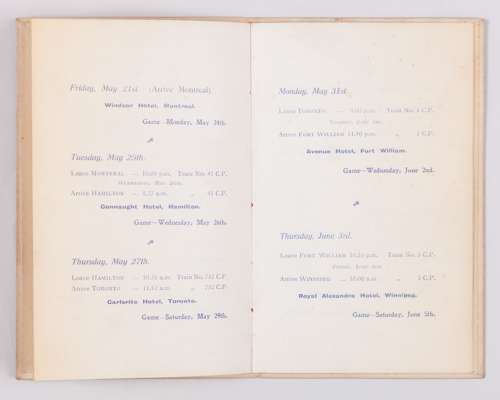 Friday, May 21st. (Arrive Montreal)
Windsor Hotel, Montreal.
Game—Monday, May 24th.
Tuesday, May 25th.
Leave Montreal — 10.00 p.m. Train No. C.P.
Wednesday, May 26th.
Arrive Hamilton — a.m. „ C.P.
Connaught Hotel, Hamilton.
Game—Wednesday, May 26th.
Thursday, May 27th.
Leave Hamilton — a.m. Train No. 732 C.P.
Arrive Toronto — a.m. „ 732 C.P.
Carlsrite Hotel, Toronto.
Game—Saturday, May 29th.
Monday, May 31st.
Leave Toronto — p.m. Train No. C.P.
Tuesday, June 1st.
Arrive Fort William p.m. „ C.P.
Avenue Hotel, Fort William.
Game—Wednesday, June 2nd.
Thursday, June 3rd.
Leave Fort William p.m. Train No. 3 C.P.
Friday, June 4th.
Arrive Winnipeg — 10.00 a.m. „ 3 C.P.
Royal Alexandra Hotel, Winnipeg.
Game—Saturday, June 5th.